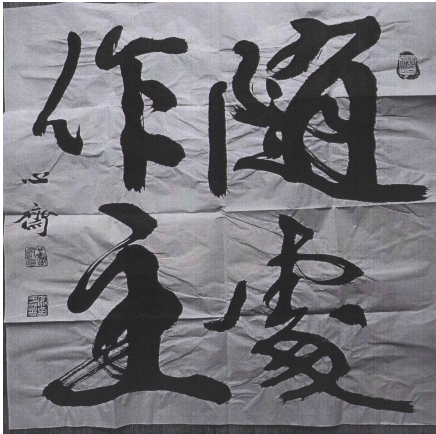 隨處
作主
心齋